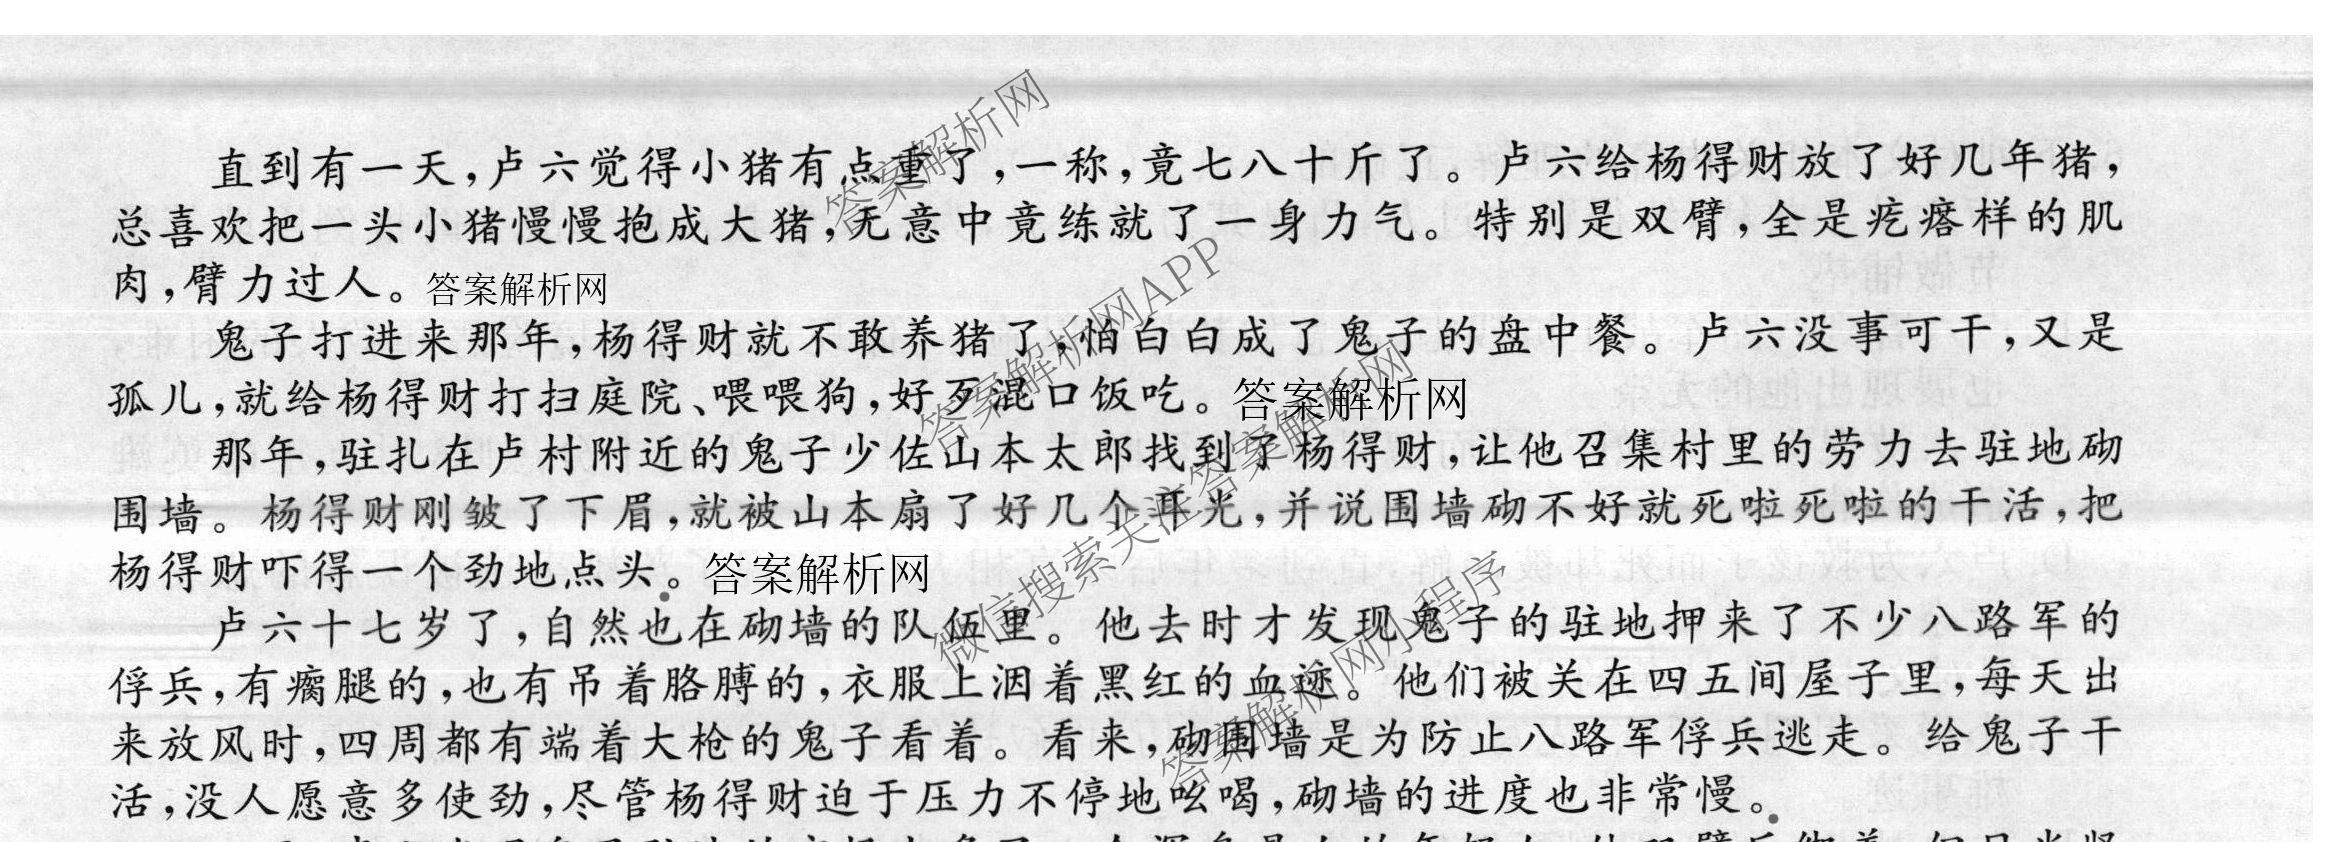 直到有一天,卢六觉得小猪有点重了,一称,竟七八十斤了。卢六给杨得财放了好几年猪,
总喜欢把一头小猪慢慢抱成大猪,无意中竟练就了一身力气。特别是双臂,全是疙瘩样的肌
肉,臂力过人。答案解析网
鬼子打进来那年,杨得财就不敢养猪了,怕白白成了鬼子的盘中餐。卢六没事可干,又是
孤儿,就给杨得财打扫庭院、喂喂狗,好歹混口饭吃。答案解析网
那年,驻扎在卢村附近的鬼子少佐山本太郎找到了杨得财,让他召集村里的劳力去驻地砌
围墙。杨得财刚皱了下眉,就被山本扇了好几个耳光,并说围墙砌不好就死啦死啦的干活,把
杨得财吓得一个劲地点头。答案解析网
卢六十七岁了,自然也在砌墙的队伍里。他去时才发现鬼子的驻地押来了不少八路军的
俘兵,有瘸腿的,也有吊着胳膊的,衣服上洇着黑红的血迹。他们被关在四五间屋子里,每天出
来放风时,四周都有端着大枪的鬼子看着。看来,砌围墙是为防止八路军俘兵逃走。给鬼子干
活,没人愿意多使劲,尽管杨得财迫于压力不停地吆喝,砌墙的进度也非常慢。
答案解析网
答案解析网APP
微信搜索关注答案解析网
答案解析网小程序